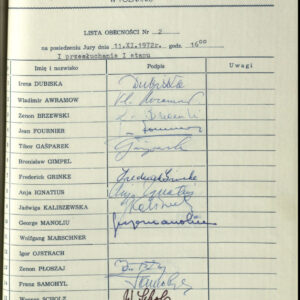 LISTA OBECNOŚCI Nr 2
na posiedzeniu Jury dnia 11.XI.1972r. godz. 16 00
I przesłuchanie I etapu
Imię i nazwisko Podpis Uwagi
1 2 3
Irena DUBISKA Dubiska
Wladimir AWRAMOW Vl. Avramov
Zenon BRZEWSKI Z. Brzewski
Jean FOURNIER J. Fournier
Tibor GAŠPAREK Gašparek
Bronisław GIMPEL
Frederick GRINKE Frederick Grinke
Anja IGNATIUS Anja Ignatius
Jadwiga KALISZEWSKA Kaliszewska
George MANOLIU George Manoliu
Wolfgang MARSCHNER
Igor OJSTRACH
Zenon PŁOSZAJ
Franz SAMOHYL Samohyl
Werner SCHOLZ W. Scholz